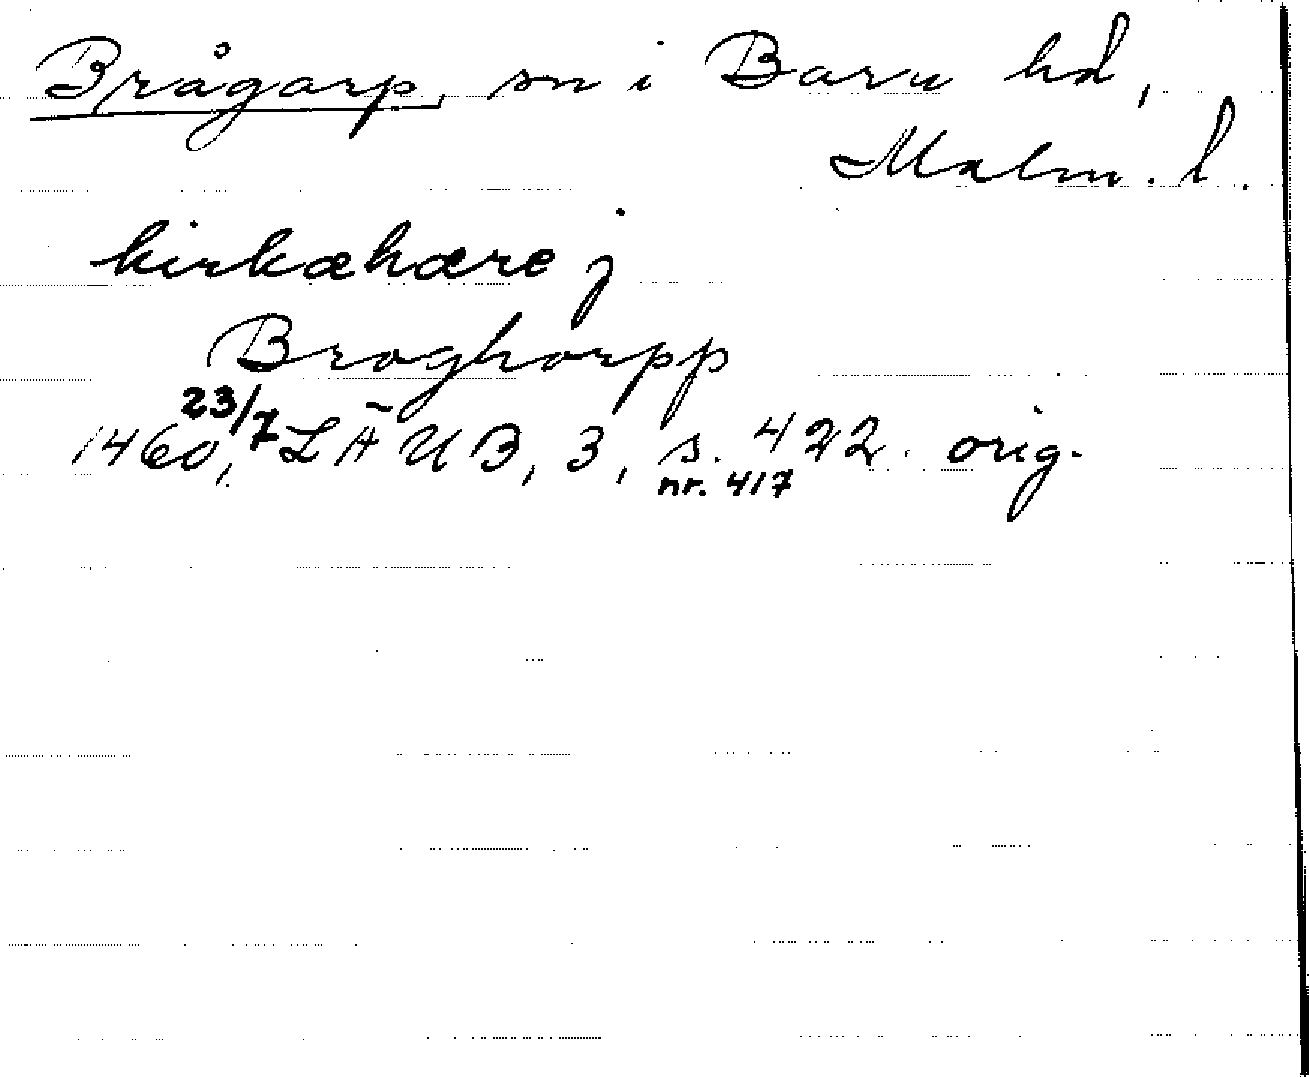 Brågarp, sn i Bara hd,
Malm. l.
kirkæhære j
Broghorpp
1460 23/7, LÄUB, 3, s. 422. orig.
nr. 417